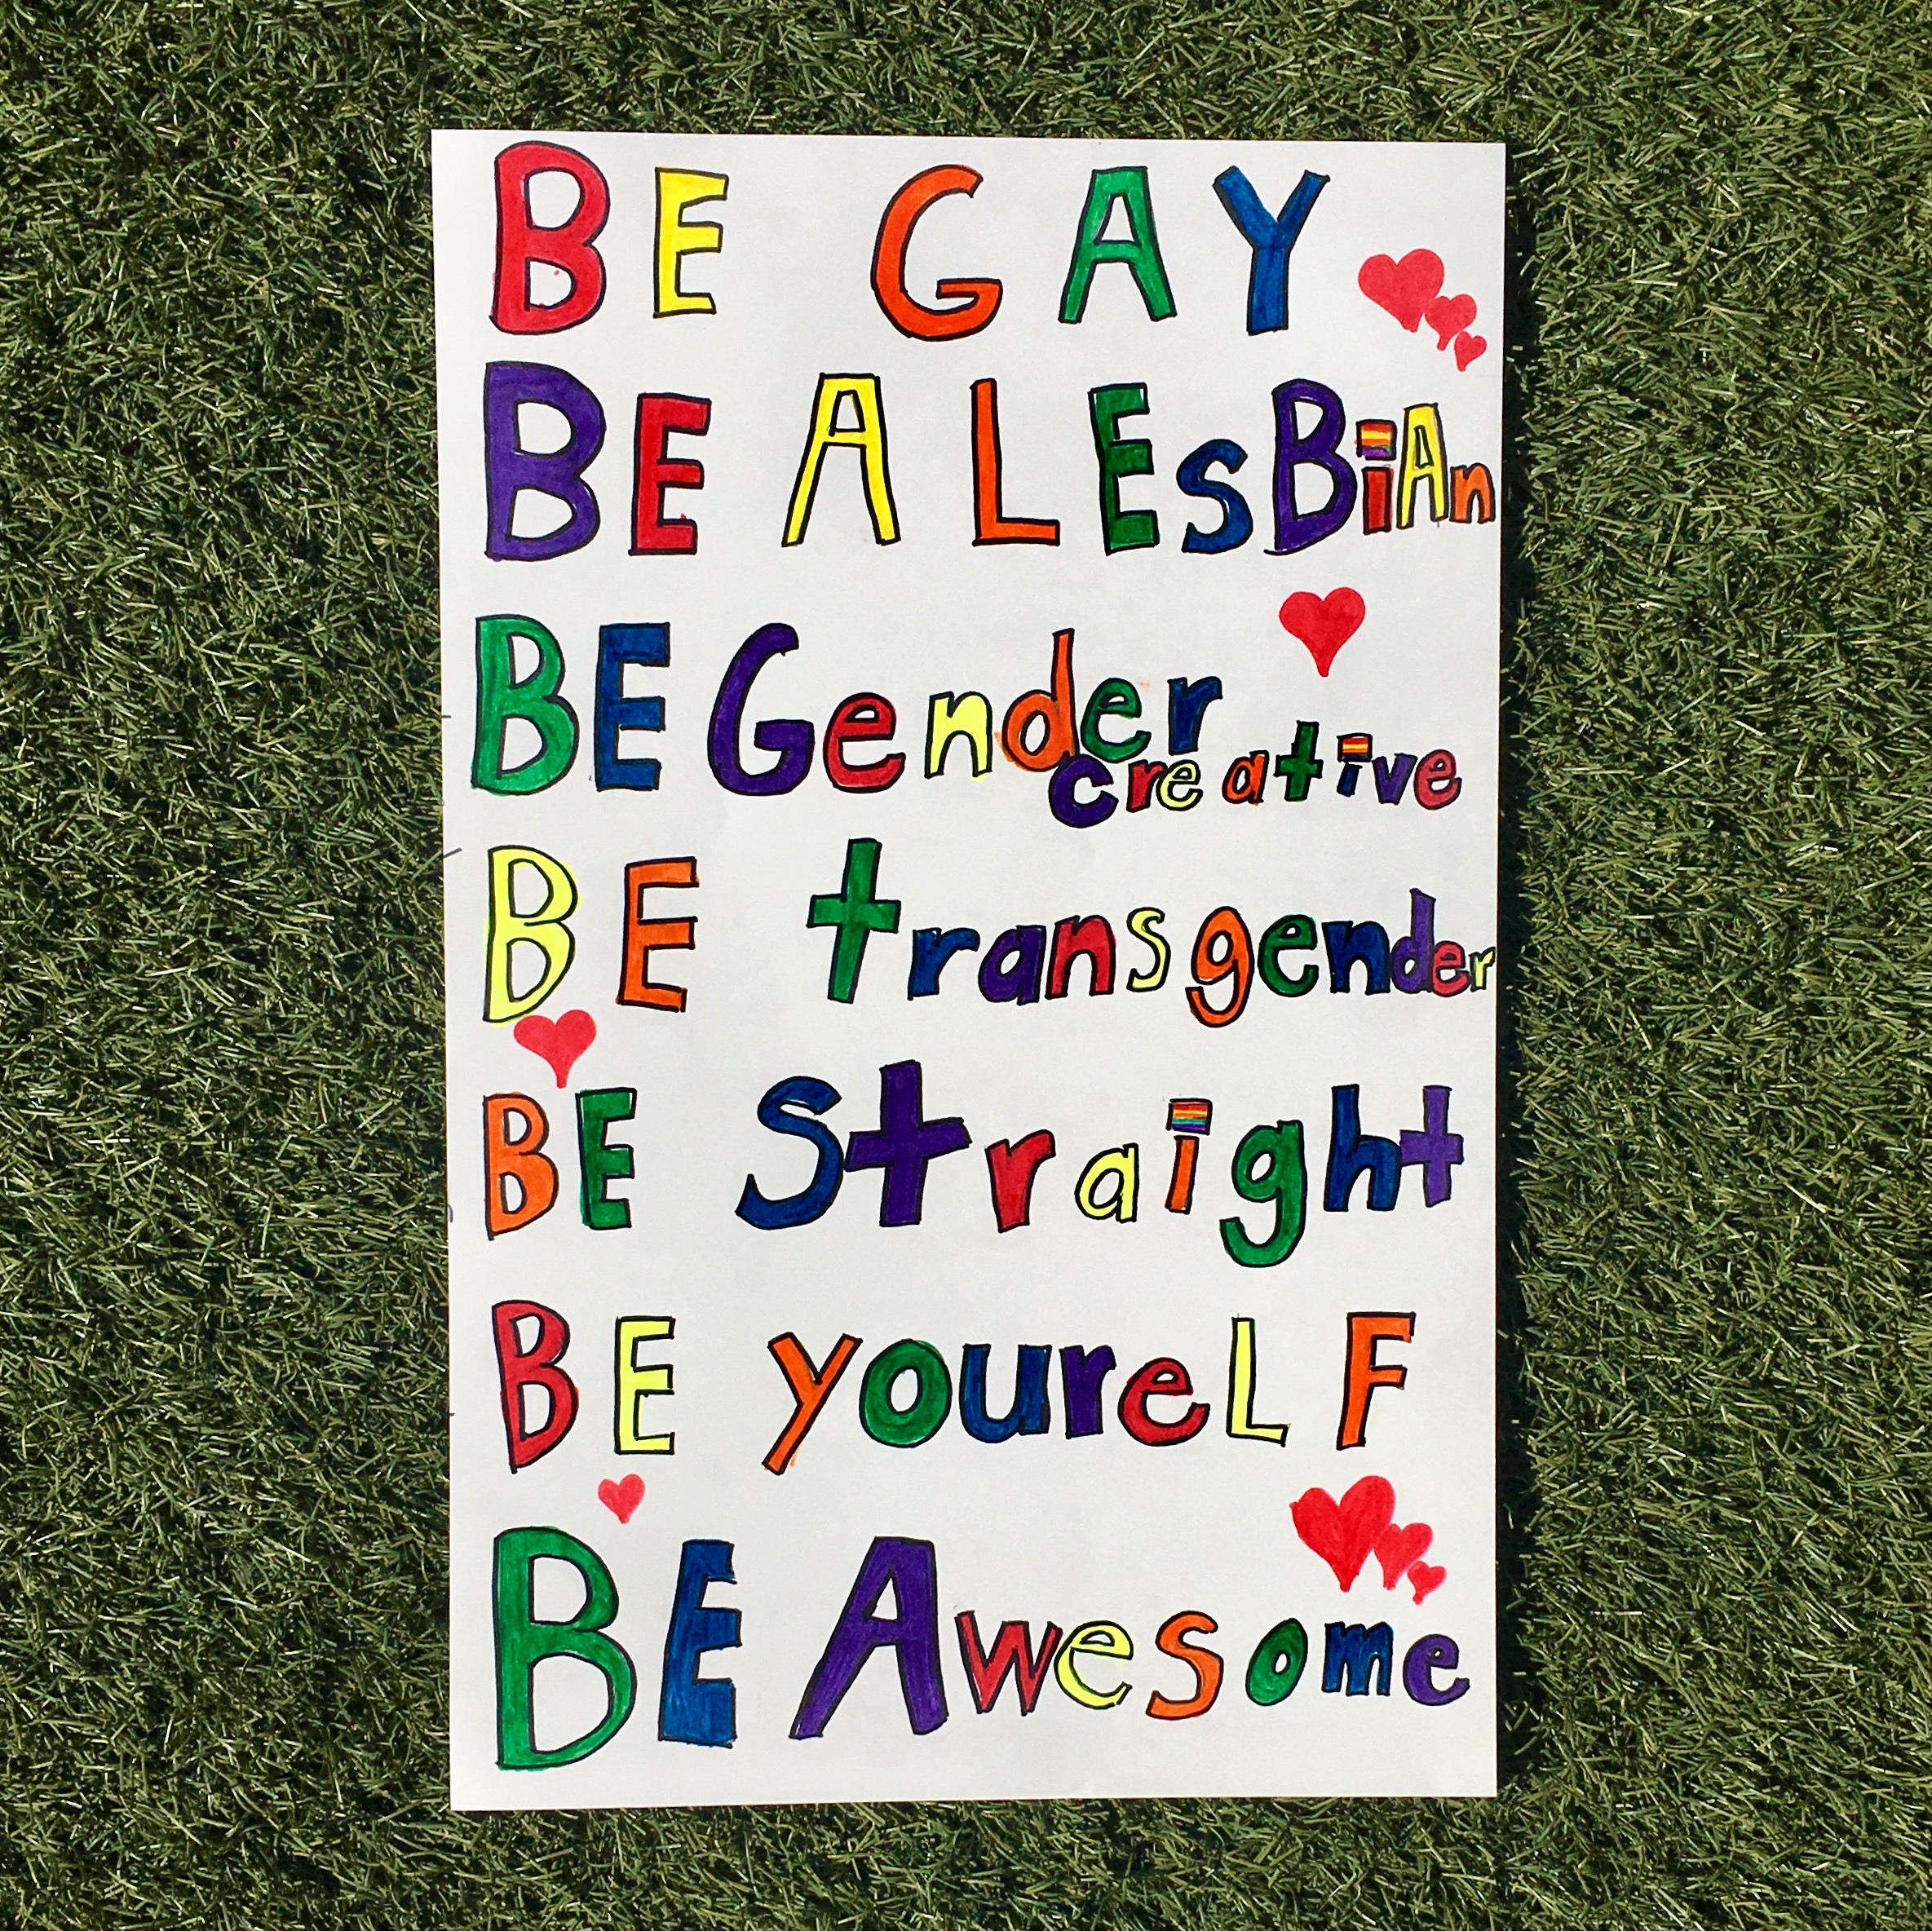 BE GAY
BE A LEsBiAn
BE Gender
creative
BE transgender
BE Straight
BE youreLF
BE Awesome